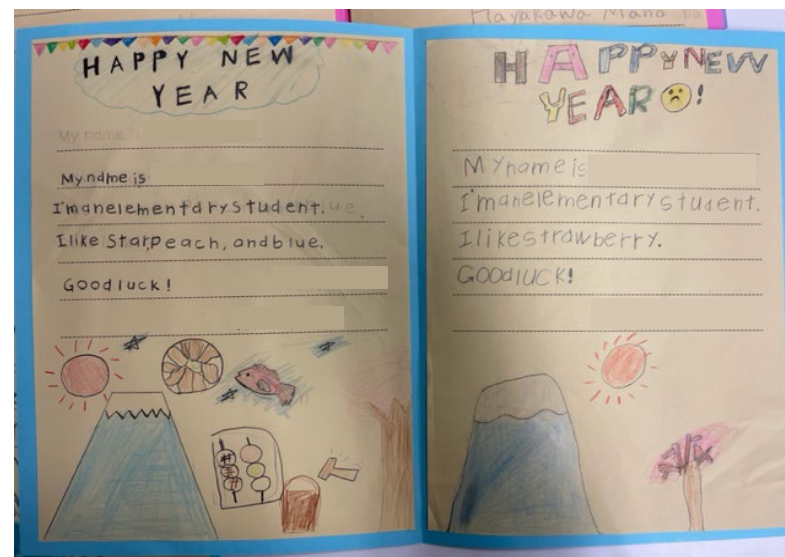 Hayakawa Mano
HAPPY NEW
YEAR
My name
My name is
I'm an elementary student.
I like Star, peach, and blue.
Good luck!
HAPPY NEW
YEAR !
My name is
I'm an elementary student.
I like strawberry.
Good luck!